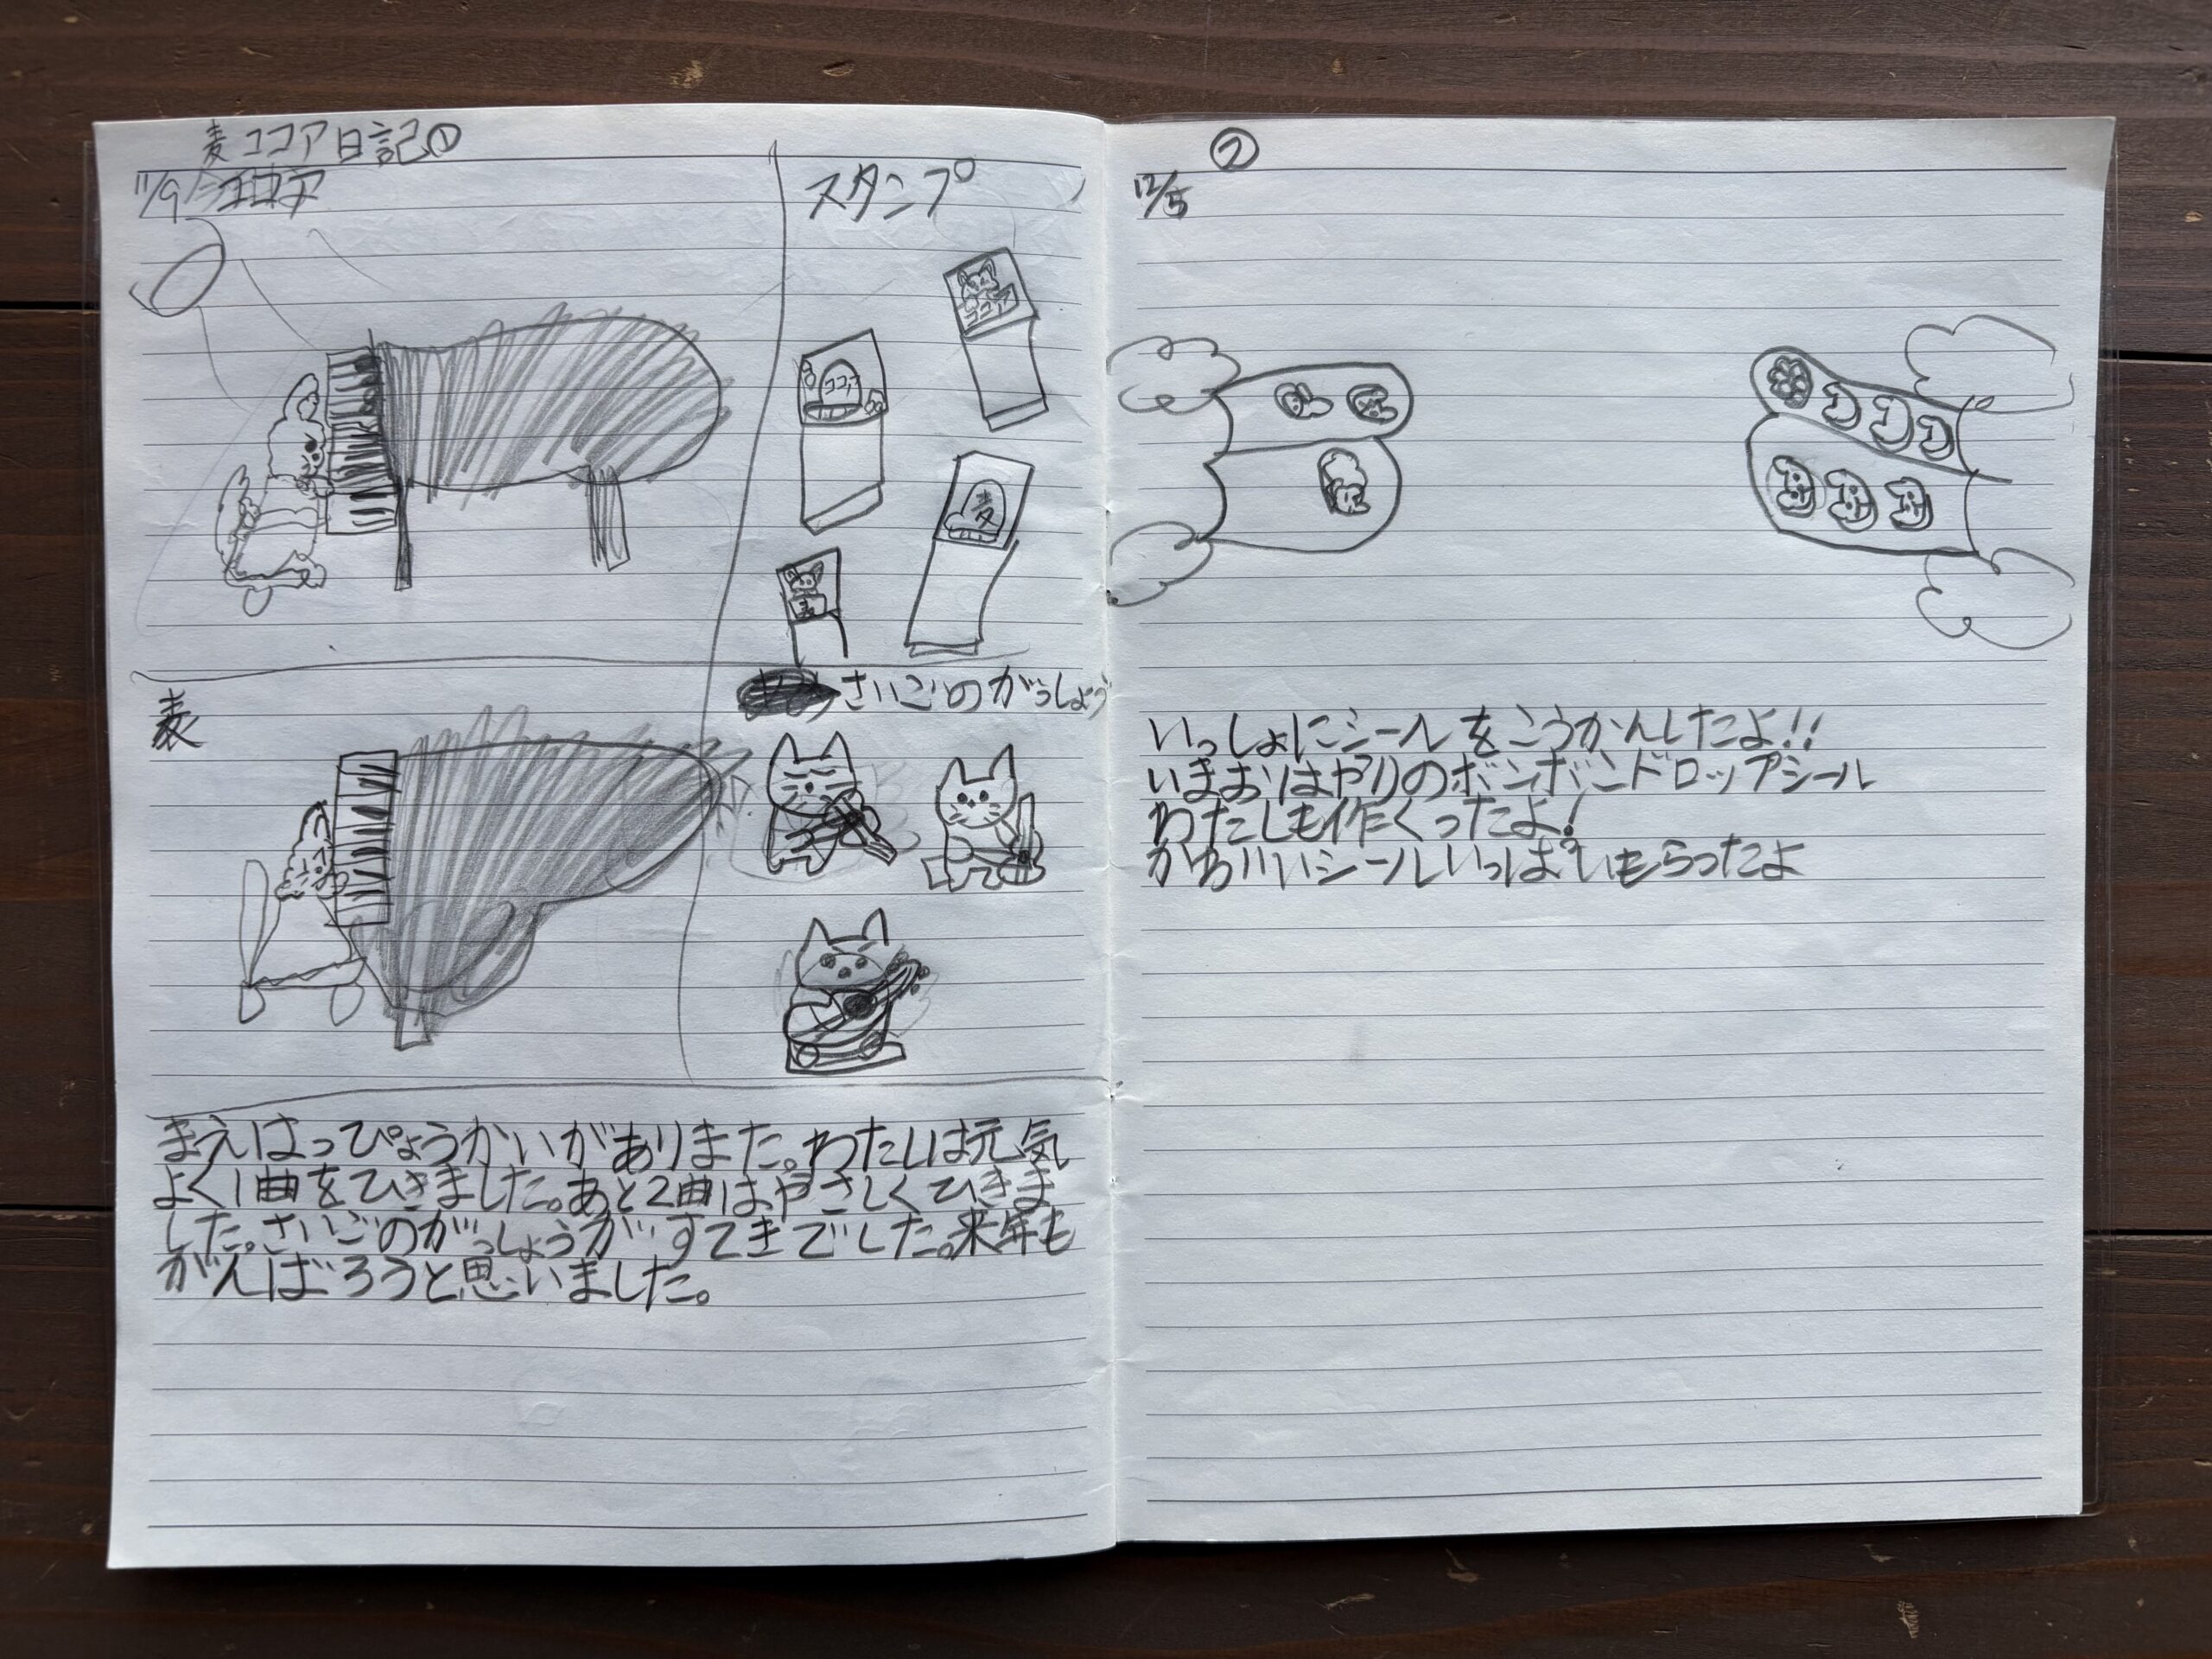 麦ココア日記①
11/9 ココア
スタンプ
ココア
ココア
麦
麦
麦
さいごのがっしょう
まえはっぴょうかいがありまた。わたしは元気
よく1曲をひきました。あと2曲はやさしくひきま
した。さいごのがっしょうがすてきでした。来年も
がんばろうと思いました。
②
12/5
いっしょにシールをこうかんしたよ!!
いまおはやりのボンボンドロップシール
わたしも作くったよ!
かわいいシールいっぱいもらったよ